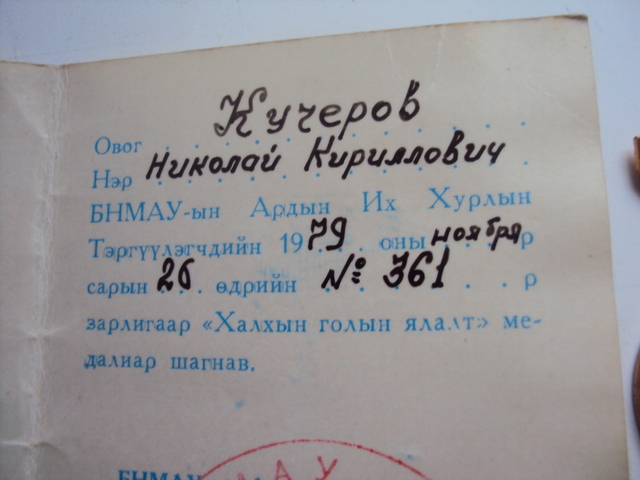 Кучеров
Овог
Нэр Николай Кириллович
БНМАУ-ын Ардын Их Хурлын
Тэргүүлэгчдийн 1979 оны ноября р
сарын 26 өдрийн № 361 р
зарлигаар «Халхын голын ялалт» ме-
далиар шагнав.
МАУ
БНМАУ